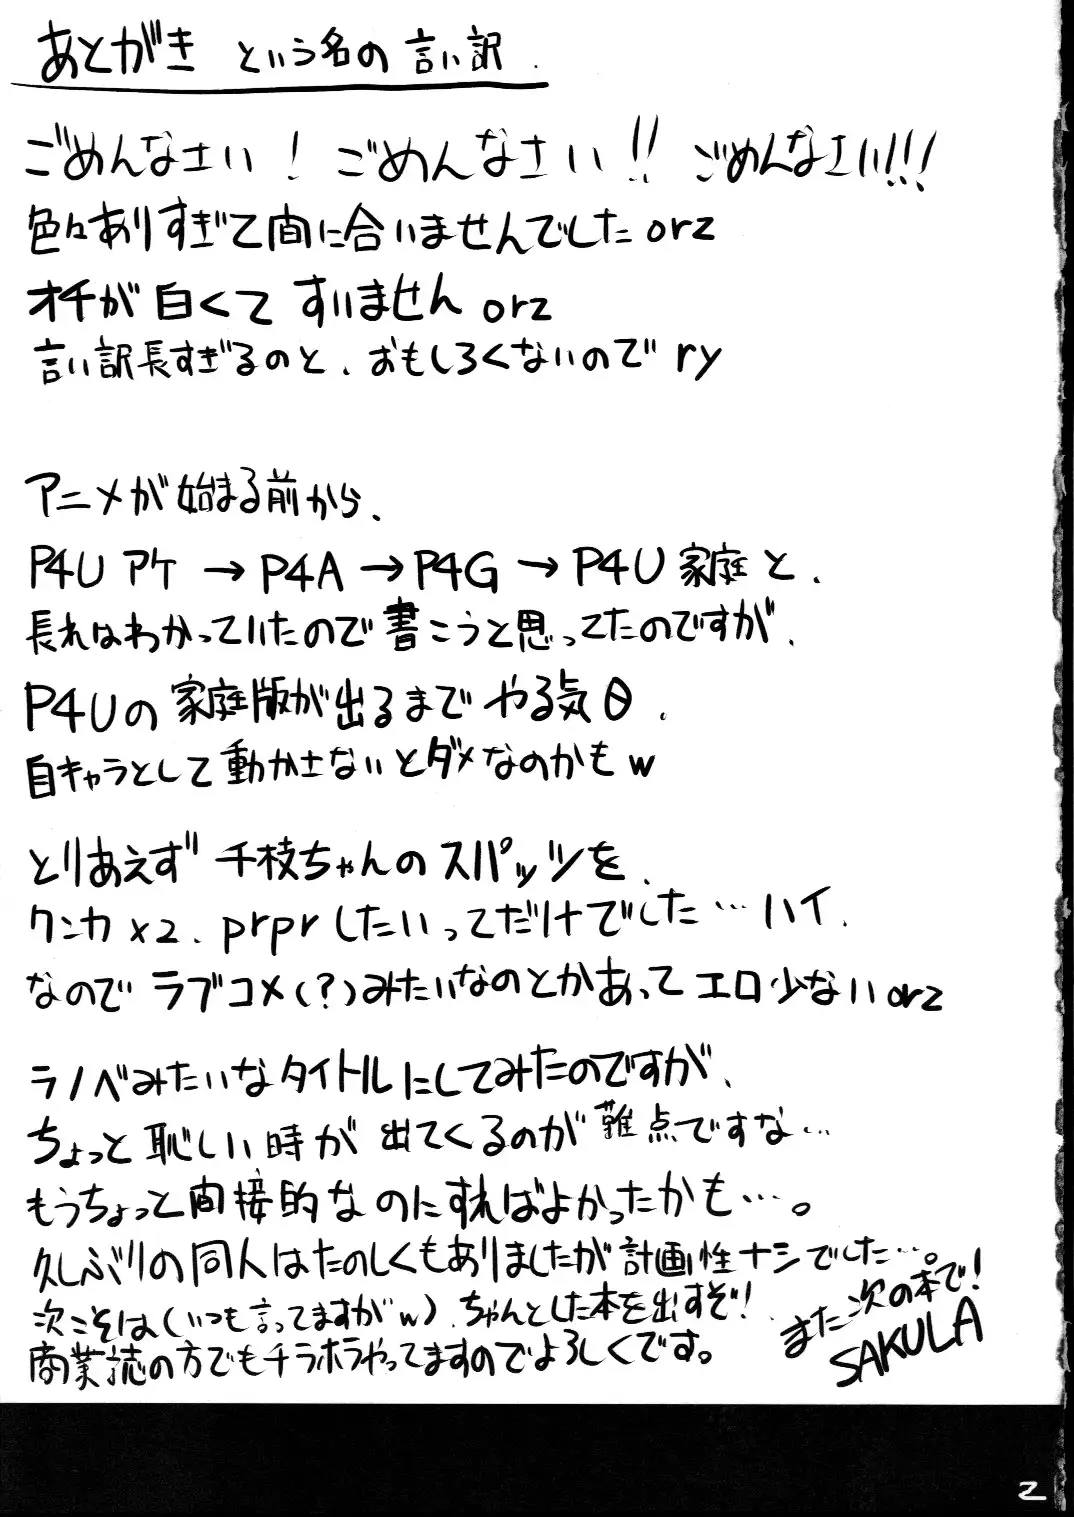 あとがき という名の言い訳.
ごめんなさい! ごめんなさい!! ごめんなさい!!!
色々ありすぎて間に合いませんでした orz
オチが白くて すいません orz
言い訳長すぎるのと、おもしろくないので ry
アニメが始まる前から、
P4U アケ → P4A → P4G → P4U 家庭 と、
長れはわかっていたので書こうと思ってたのですが、
P4Uの家庭版が出るまでやる気θ、
自キャラとして動かさないとダメなのかもw
とりあえず千枝ちゃんのスパッツを、
クンカ×2、prprしたいってだけでした…ハイ、
なのでラブコメ(?)みたいなのとかあってエロ少ないorz
ラノベみたいなタイトルにしてみたのですが、
ちょっと恥しい時が出てくるのが難点ですな…
もうちょっと間接的なのにすればよかったかも…。
久しぶりの同人はたのしくもありましたが計画性ナシでした…。
次こそは(いつも言ってますがw)、ちゃんとした本を出すぞ!
商業誌の方でもチラホラやってますのでよろしくです。
また次の本で!
SAKULA
2